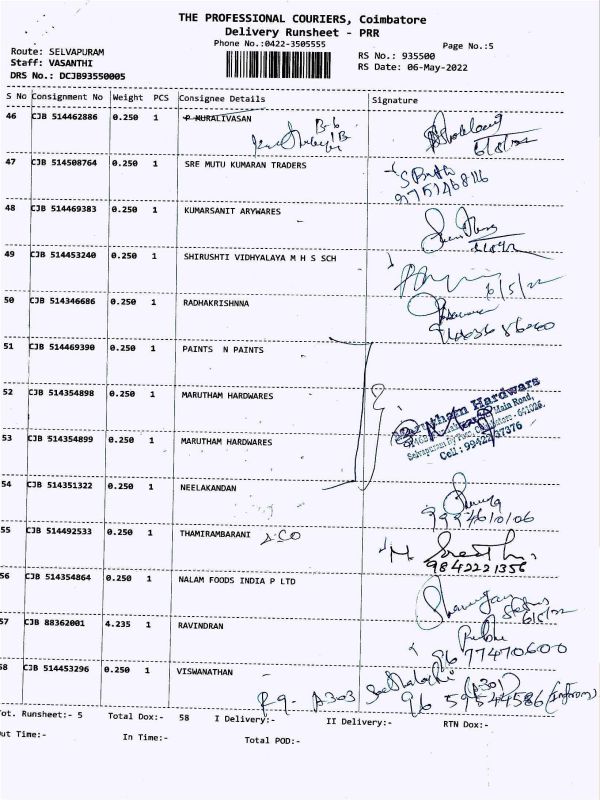 THE PROFESSIONAL COURIERS, Coimbatore
Delivery Runsheet - PRR
Phone No.:0422-3505555
Page No.:5
Route: SELVAPURAM
Staff: VASANTHI
DRS No.: DCJB93550005
RS No.: 935500
RS Date: 06-May-2022
S No Consignment No Weight PCS Consignee Details Signature
46 CJB 514462886 0.250 1 P MURALIVASAN
B-6
6/5/22
47 CJB 514508764 0.250 1 SRE MUTU KUMARAN TRADERS
48 CJB 514469383 0.250 1 KUMARSANIT ARYWARES
49 CJB 514453240 0.250 1 SHIRUSHTI VIDHYALAYA M H S SCH
6/5/22
50 CJB 514346686 0.250 1 RADHAKRISHNNA
51 CJB 514469390 0.250 1 PAINTS N PAINTS
52 CJB 514354898 0.250 1 MARUTHAM HARDWARES
Marutham Hardwars
Main Road,
Coimbatore - 641026.
Cell : 99422 37376
53 CJB 514354899 0.250 1 MARUTHAM HARDWARES
54 CJB 514351322 0.250 1 NEELAKANDAN
55 CJB 514492533 0.250 1 THAMIRAMBARANI
9842221356
56 CJB 514354864 0.250 1 NALAM FOODS INDIA P LTD
6/5/22
57 CJB 88362001 4.235 1 RAVINDRAN
9677470600
58 CJB 514453296 0.250 1 VISWANATHAN
A303
(A301)
Tot. Runsheet:- 5 Total Dox:- 58 I Delivery:- II Delivery:- RTN Dox:-
Out Time:- In Time:- Total POD:-